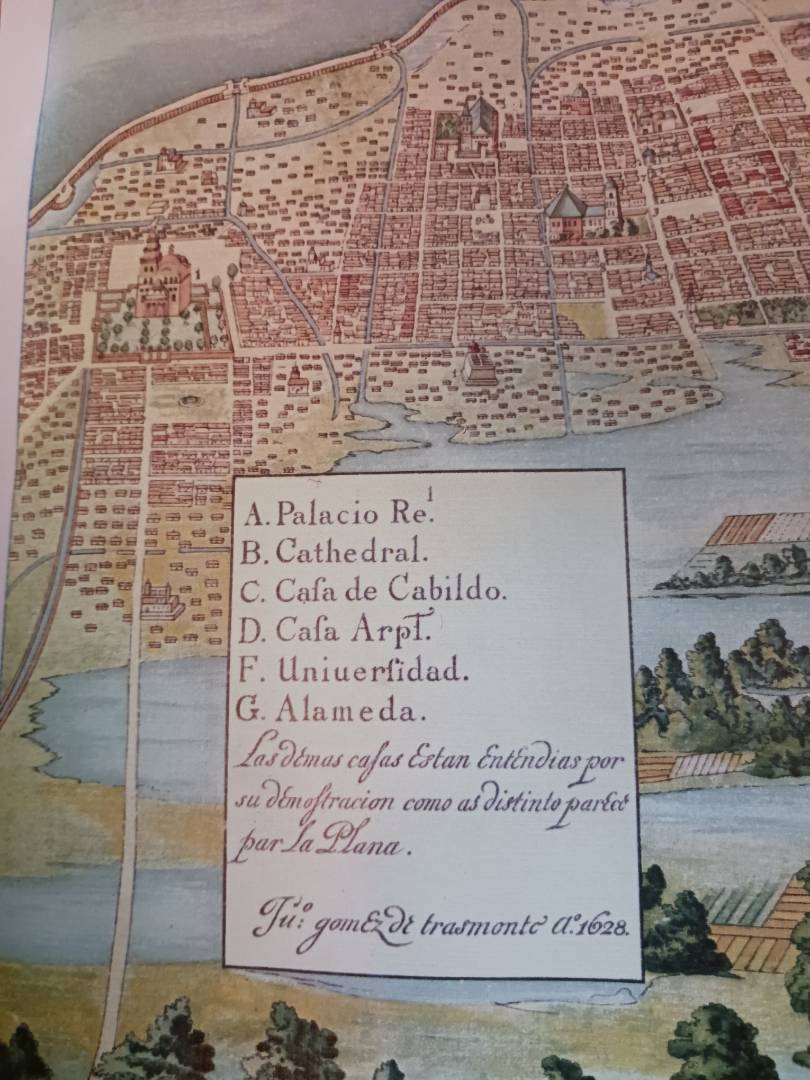 A. Palacio Re.ˡ
B. Cathedral.
C. Caſa de Cabildo.
D. Caſa ArpT.
F. Uniuerſidad.
G. Alameda.
Las demas caſas Estan Entendias por
su demoſtracion como as distinto parece
par la Plana.
Ju.º gomEz de trasmonte A.º 1628.